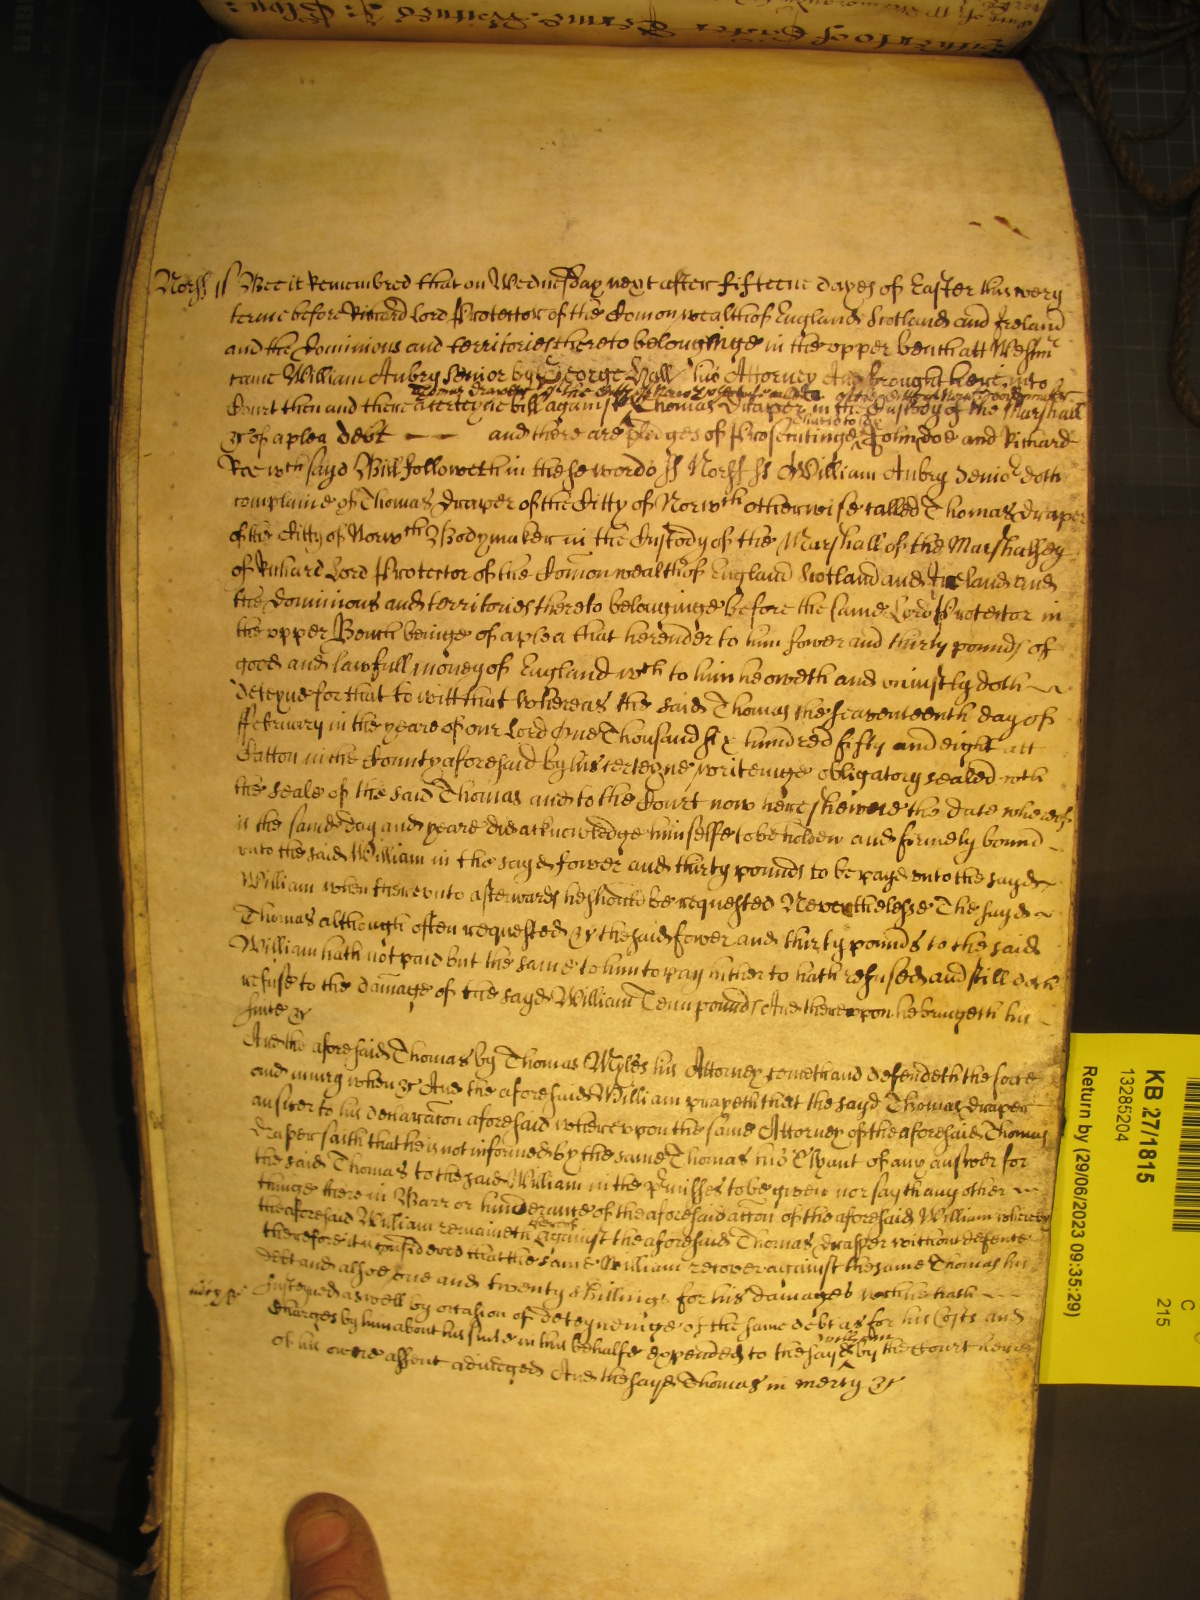 Norff ss Bee it Remembred that on Wednesday next after fifteene dayes of Easter this very
terme before Richard Lord Protector of the Comonwealth of England Scotland and Ireland
and the Dominions and territories thereto belonginge in the vpper bench att Westm
came William Aubry Senior by George Hall his Attorney And brought here into
Court then and there a certeyne bill against Thomas Draper in the Custody of the Marshall
&c of a plea debt and there are pledges of Prosecutinge John doe and Richard
Roe wch sayd Bill followeth in these words ss Norff ss William Aubry Senior doth
complaine of Thomas Draper of the Citty of Norwch otherwise called Thomas Draper
of the Citty of Norwch Bodymaker in the Custody of the Marshall of the Marshalsey
of Richard Lord Protector of the Comon wealth of England Scotland and Ireland and
the Dominions and territories thereto belonginge before the same Lord Protector in
the vpper Bench beinge of a plea that he render to him fower and thirty pounds of
good and lawfull money of England wch to him he oweth and vniustly doth
deteyne for that to witt that whereas the said Thomas the seaventeenth day of
ffebruary in the yeare of our Lord One Thousand six hundred fifty and eight att
Catton in the County aforesaid by his certeyne writeinge obligatory sealed with
the seale of the said Thomas and to the Court now here shewne the date whereof
is the same day and yeare did acknowledge himselfe to be holden and firmely bound
vnto the said William in the sayd fower and thirty pounds to be payd vnto the sayd
William when therevnto afterwards he should be requested Neverthelesse The sayd
Thomas although often requested &c the said fower and thirty pounds to the said
William hath not paid but the same to him to pay hitherto hath refused and still doth
refuse to the damage of the sayd William Tenn pounds And therevpon he bringeth his
suite &c
And the aforesaid Thomas by Thomas Myles his Attorney cometh and defendeth the force
and iniury when &c And the aforesaid William prayeth that the sayd Thomas Draper
answer to his declaracon aforesaid wherevpon the same Attorney of the aforesaid Thomas
Draper saith that he is not informed by the same Thomas his Clyant of any answer for
the said Thomas to the said William in the Pmisses to be given nor sayth any other
thinge there in Barr or hinderance of the aforesaid accon of the aforesaid William whereby
the aforesaid William remaineth thereof against the aforesaid Thomas Draper without defence
therefore it is considered that the same William recover against the same Thomas his
debt and alsoe one and twenty shillings for his damages which he hath
susteyned aswell by occasion of deteyneinge of the same debt as for his Costs and
Charges by him about his suite in this behalfe expended to the sayd William by the Court here
of his owne assent adiudged And the sayd Thomas in mercy &c
KB 27/1815
13285204
Return by (29/06/2023 09:35:29)
C
215